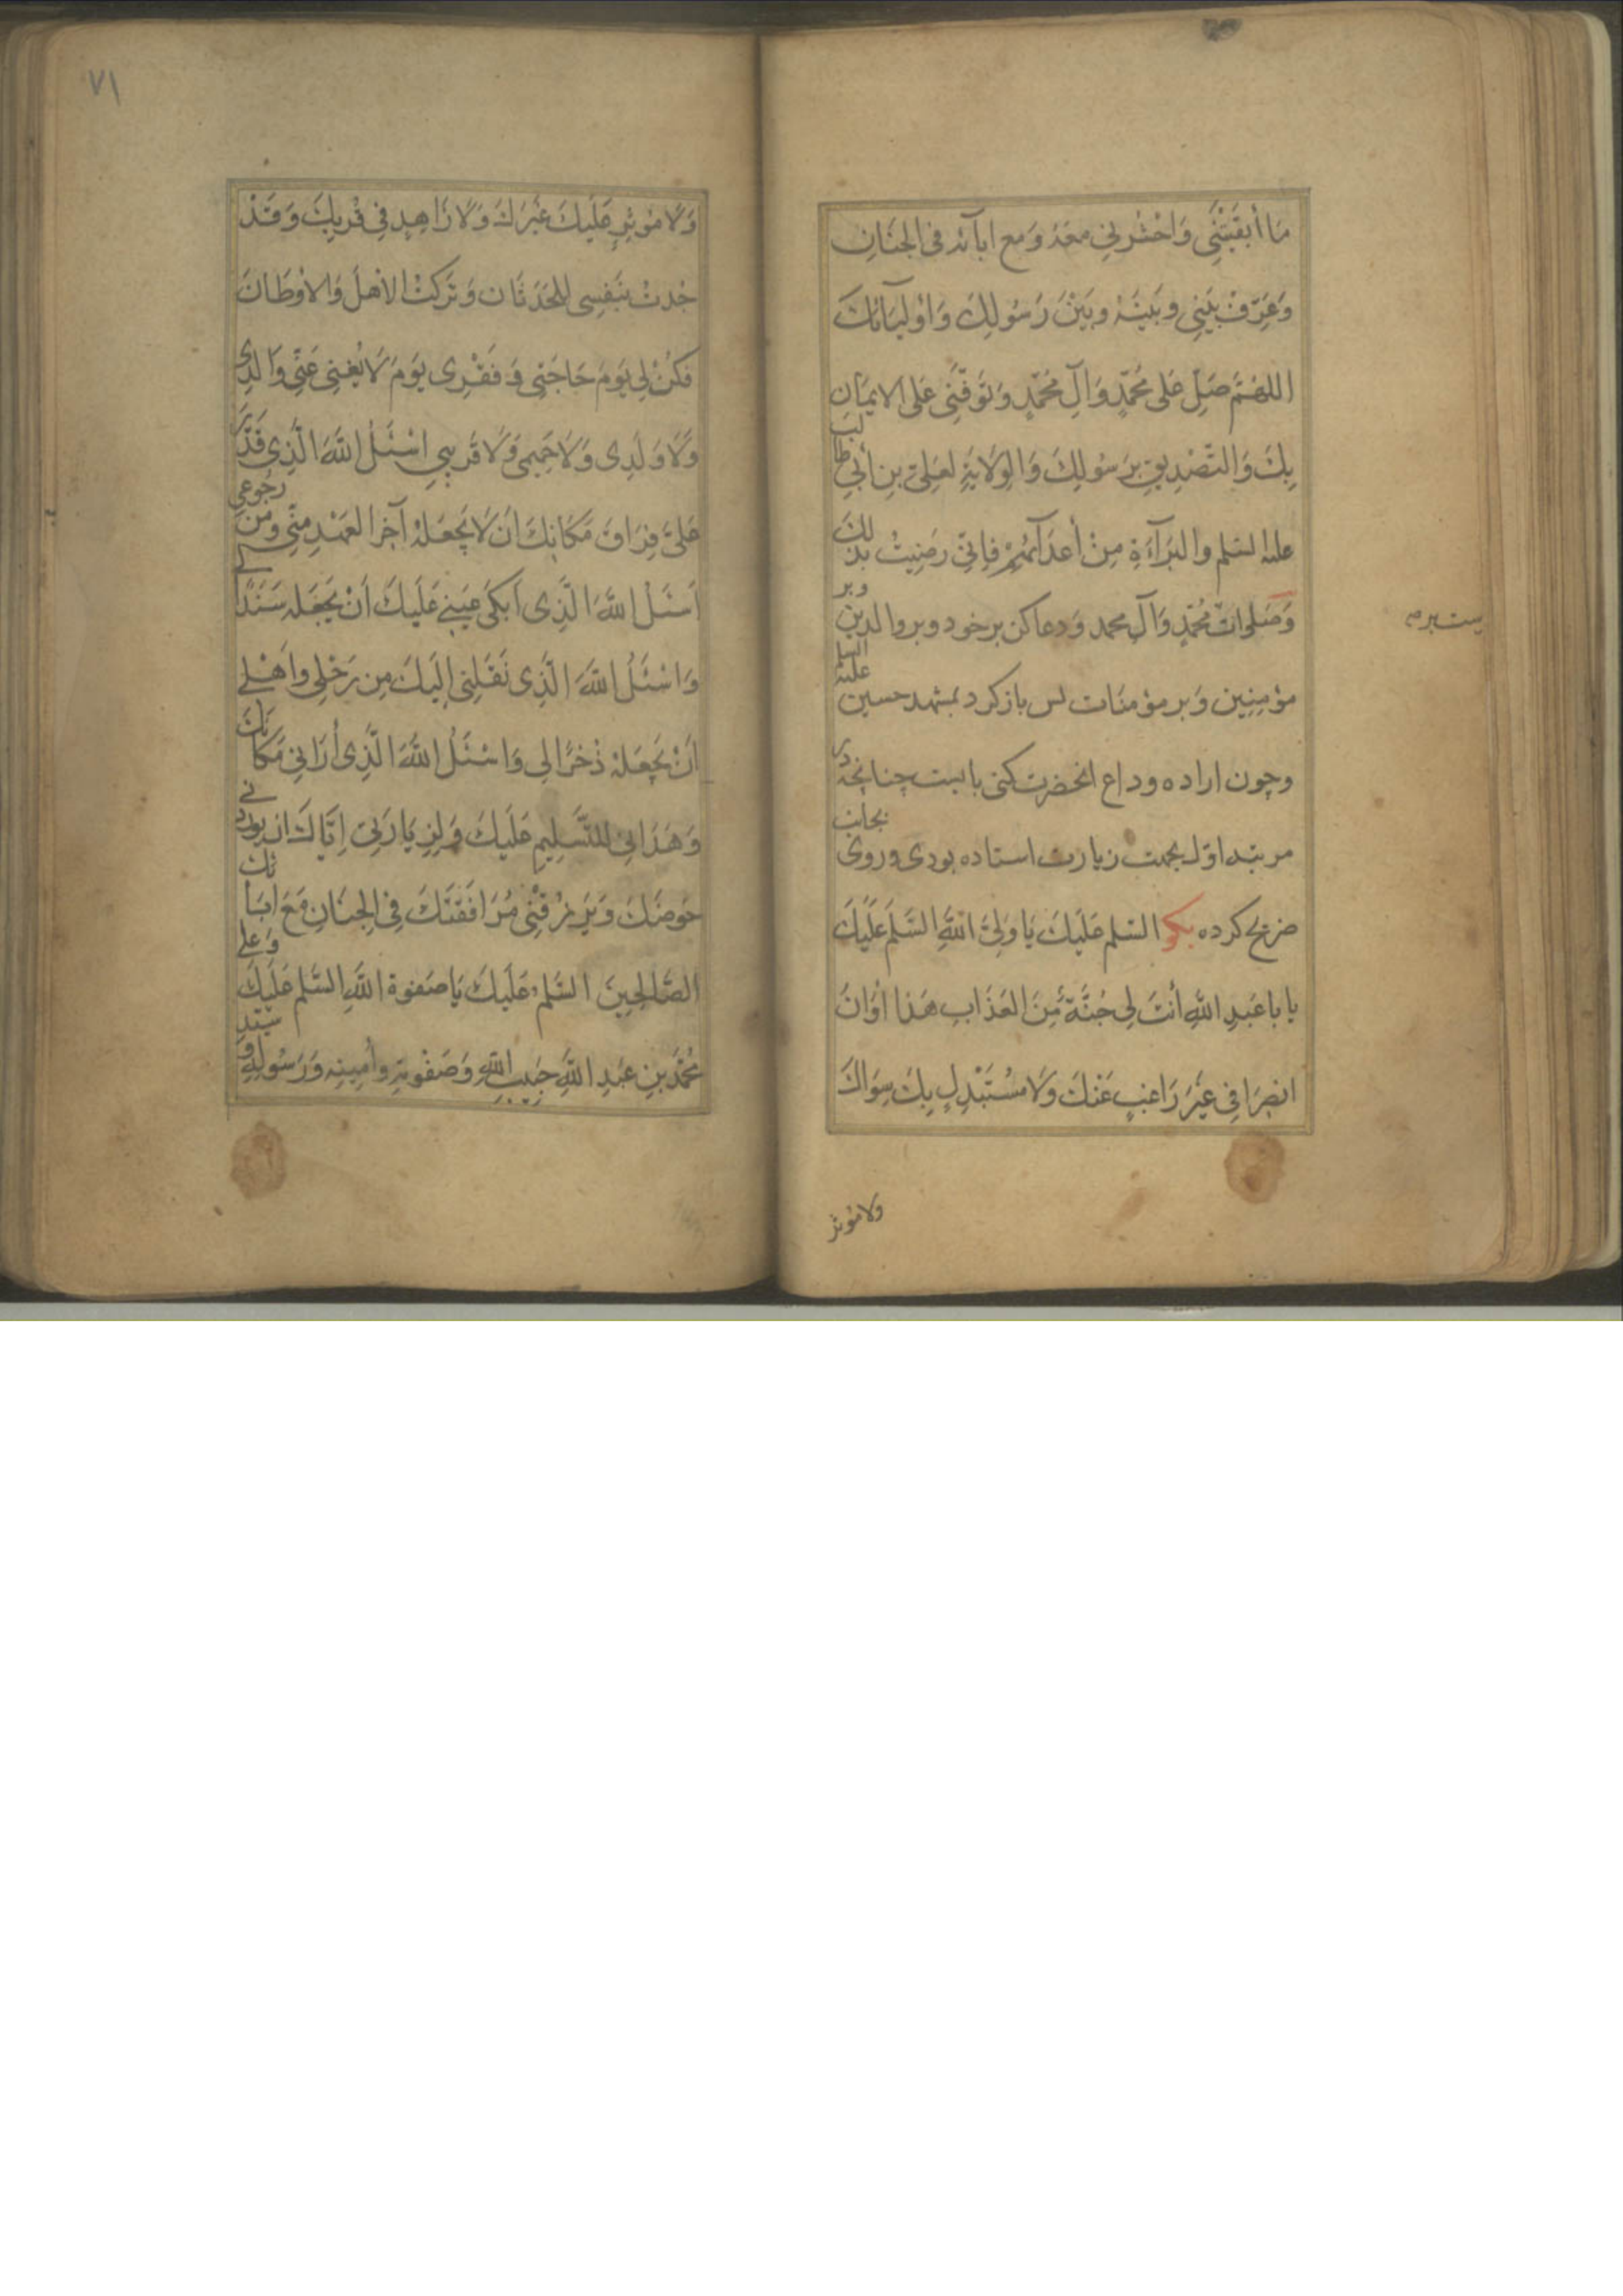 مَا أَبْقَيْتَنِي وَاحْشُرْنِي مَعَهُ وَمَع ابآئه فی الجنَانِ
وَعَرِّفْ بَيْنِي وَبَيْنَهُ وَبَيْنَ رَسُولِكَ وَاوْلِيَآئِكَ
اللهُمَّ صَلِّ عَلى مُحَمَّدٍ وَآلِ مُحَمَّدٍ وَتَوَفَّنِي عَلَى الايمَانِ
بِكَ وَالتَّصْدِيقِ بِرَسُولِكَ وَالوِلَايَةِ لعَلِيِّ بنِ أبِي طالب
عليه السلم والبَرَآءَةِ مِنْ أعدَآئِهِمْ فَإنِّي رَضِيتُ بذلك
وَصَلواتُ مُحَمَّدٍ وَآلِ محمد وَدعا کن بر خود و بر والدین وبر
مؤمِنِین وَبر مؤمنَات پس باز کرد بمشهد حسین علیه السلم
وچون اراده وداع انحضرت کنی بایست چنانچه در
مرتبه اوّل بجهت زیارت استاده بودی وروی بجانب
ضریح کرده بکو السّلم عَلَيكَ يَا وَلِيَّ اللهِ السَّلَم عَلَيكَ
يا با عَبدِ اللهِ أنتَ لِی جُنَّةٌ مِنَ العَذَابِ هَذا أوَانُ
انصِرَافِي غَيرَ رَاغبٍ عَنْكَ وَلَا مُسْتَبْدِلٍ بِكَ سِوَاكَ
ولا موثر
٧١
وَلَا مُوْثِرٍ عَلَيكَ غَيْرَكَ وَلَا زَاهِدٍ فِي قُربِكَ وَقَدْ
جُدتُ بِنَفسِی للحَدَثَانِ وَتَرَكتُ الأهلَ وَالأوْطَانَ
فَكُنْ لِی يَومَ حَاجَتِی وَفَقْرِی يَومَ لَا يُغنِی عَنِّی وَالِدِی
وَلَا وَلَدِی وَلَا حَمِيمِی وَلَا قَرِيبِي اسْئَلُ اللهَ الَّذِی قَدَّرَ
عَلَیَّ فِرَاقَ مَكَانِكَ أنْ لَا يَجعَلَهُ آخِرَ العَهْدِ مِنِّی وَمِن رجُوعِی
أسْئَلُ اللهَ الَّذِی أبكَى عَينِی عَلَيكَ أنْ يَجعَلَه سَنَدًا لی
وَاسْئَلُ اللهَ الَّذِی نَقَلَنِی إلَيكَ مِن رَحْلِي وَأهْلِي
أنْ يَجعَلَهُ ذُخْرًا لِی وَاسْئَلُ اللهَ الَّذِی أرَانِي مَكَانَكَ
وَهَدَانِی للتَّسْلِيمِ عَلَيكَ وَلِزِيَارَتِي إيَّاكَ ان يوردنی
حَوضَكَ وَيَرزُقَنِي مُرَافَقَتَكَ فِی الجِنَانِ مَعَ ابآئك
الصَّالِحِينَ السَّلم عَلَيكَ يَا صَفوةَ اللهِ السَّلم عَلَيكَ وَعلى
مُحَمَّدِ بنِ عَبدِ اللهِ حَبِيبِ اللهِ وَصَفْوَتِهِ وَأمِينِهِ وَرَسُولِهِ وسيّد